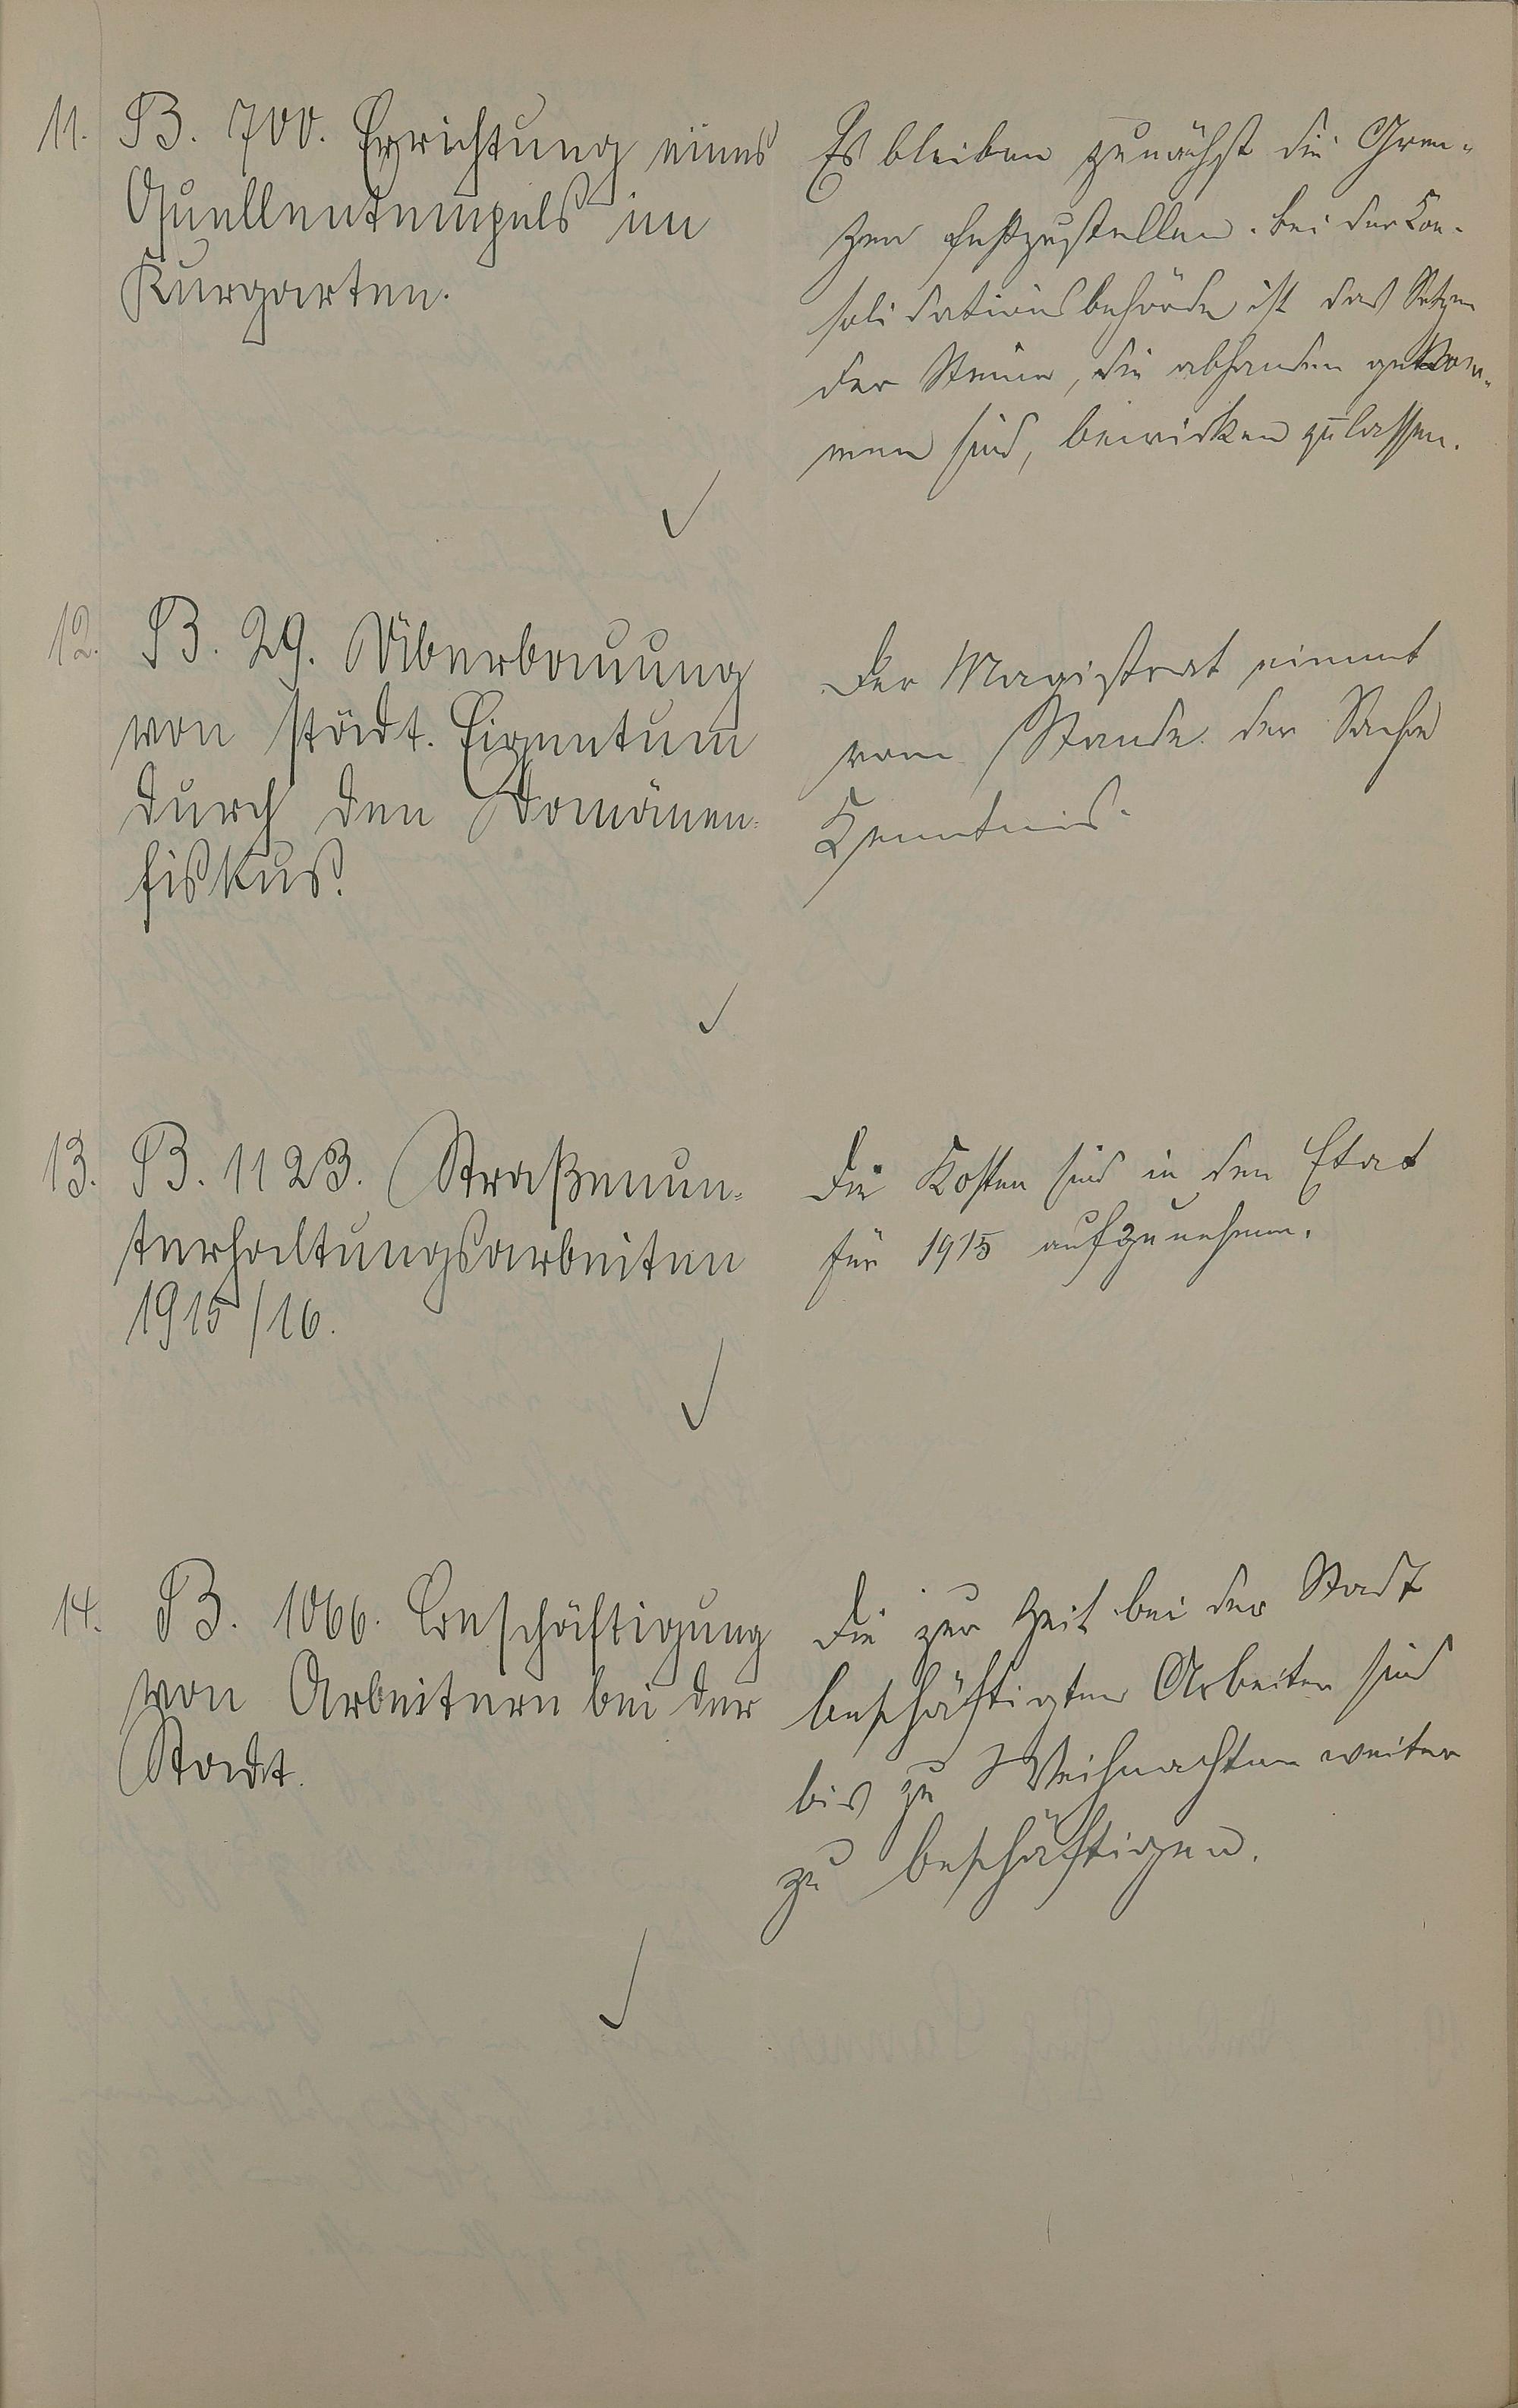 11. B. 700. Errichtung eines
Quellentempels im
Kurgarten.
Es bleiben zunächst die Gren-
zen festzustellen. Bei der Kon-
solidationsbehörde ist das Setzen
der Steine, die abhanden gekom-
men sind, bewirken zu lassen.
12. B. 29. Überbauung
von städt. Eigentum
durch den Domänen-
fiskus.
Der Magistrat nimmt
vom Stande der Sache
Kenntnis.
13. B. 1123. Straßenun-
terhaltungsarbeiten
1915/16.
Die Kosten sind in den Etat
für 1915 aufzunehmen.
14. B. 1066. Beschäftigung
von Arbeitern bei der
Stadt.
Die zur Zeit bei der Stadt
beschäftigten Arbeiter sind
bis zu Weihnachten weiter
zu beschäftigen.